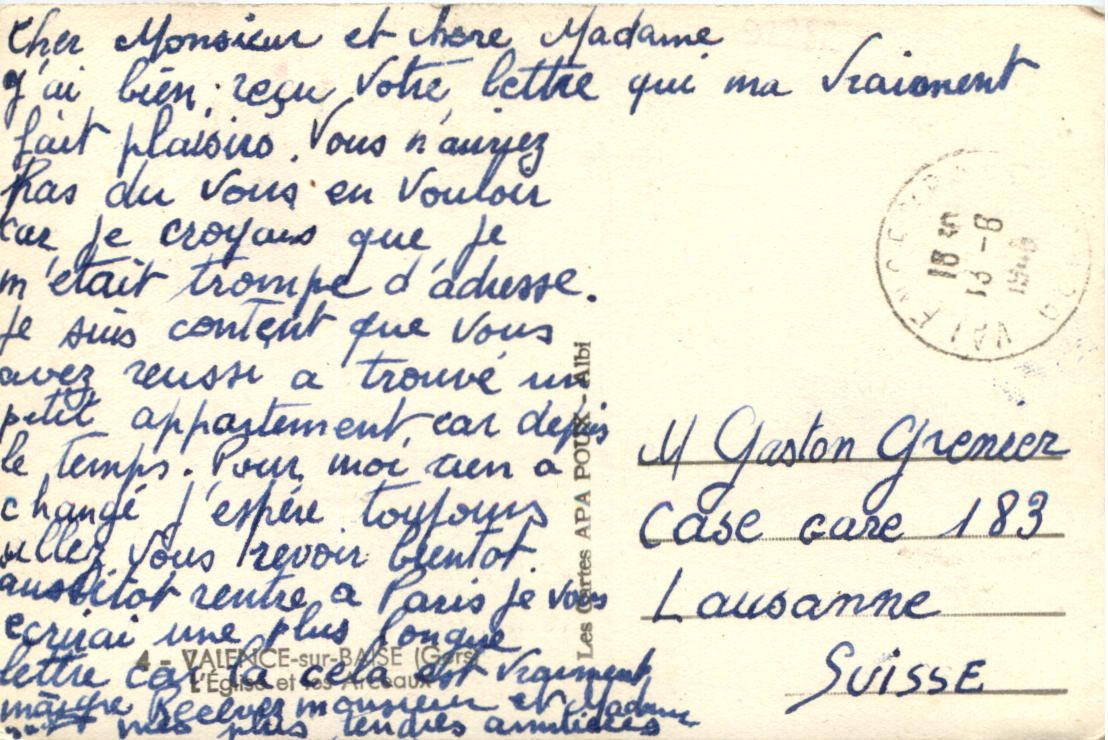 Cher Monsieur et chère Madame
J'ai bien reçu votre lettre qui ma vraiment
fait plaisir. Vous n'auriez
Pas du vous en vouloir
car je croyais que je
m'était trompe d'adresse.
Je suis content que vous
avez reussi a trouvé un
petit appartement, car depuis
le temps. Pour moi rien a
changé j'espère toujours
allez vous revoir bientot.
aussitot rentre a Paris je vous
ecrirai une plus longue
lettre car cela est vraiment
maigre Recever monsieur et Madame
mes plus tendres amitiées
4 - VALENCE-sur-BAISE (Gers)
L'Église et les Arceaux
Les Cartes APA POUX - Albi
18 H
13 - 8
VALENCE
M Gaston Grenier
Case gare 183
Lausanne
SUISSE